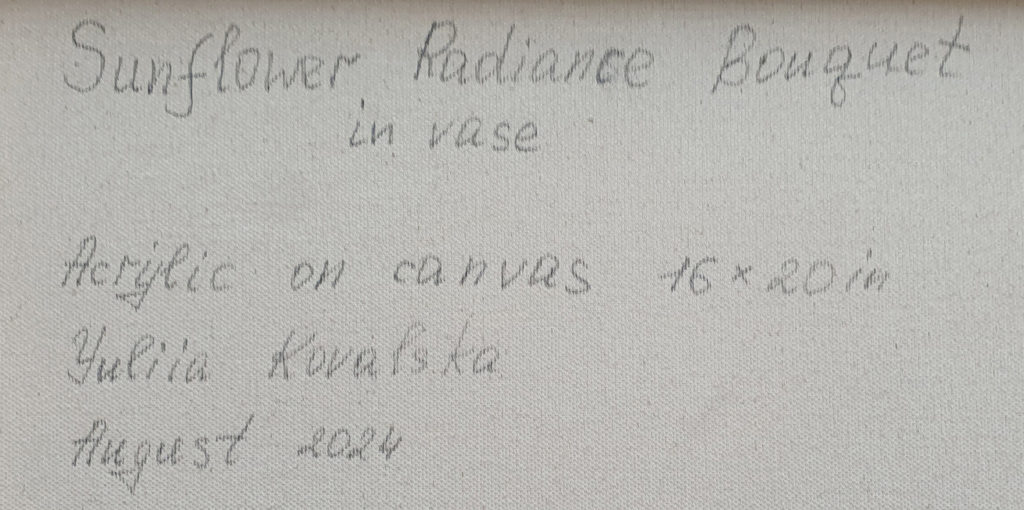 Sunflower Radiance Bouquet
in vase
Acrylic on canvas 16×20 in
Yuliia Kovalska
August 2024